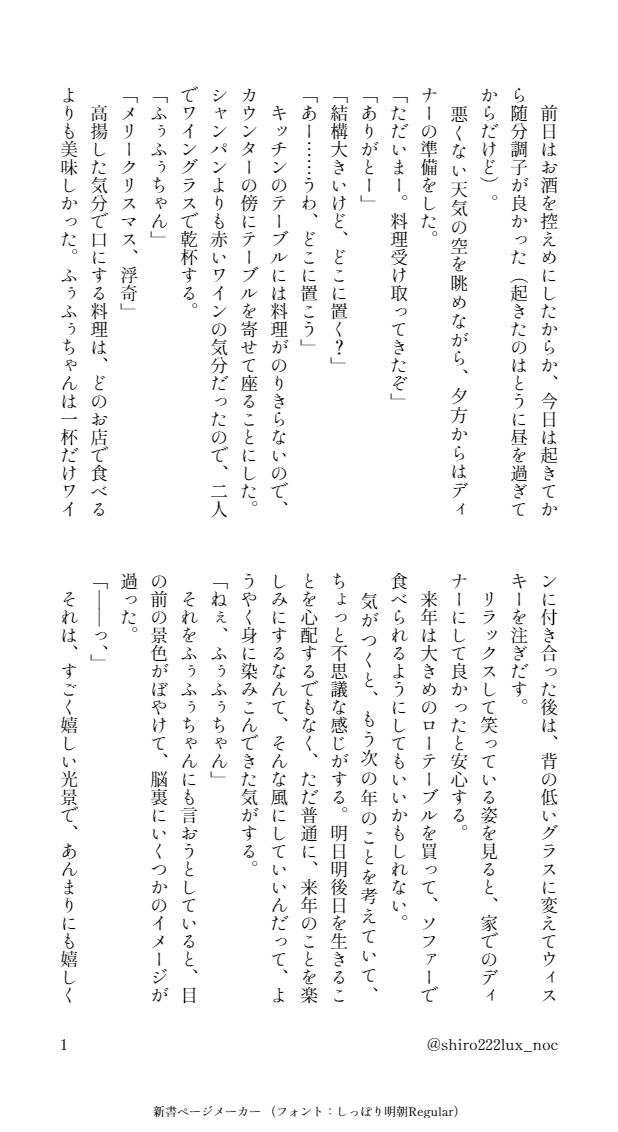 前日はお酒を控えめにしたからか、今日は起きてか
ら随分調子が良かった（起きたのはとうに昼を過ぎて
からだけど）。
悪くない天気の空を眺めながら、夕方からはディ
ナーの準備をした。
「ただいまー。料理受け取ってきたぞ」
「ありがとー」
「結構大きいけど、どこに置く？」
「あー……うわ、どこに置こう」
キッチンのテーブルには料理がのりきらないので、
カウンターの傍にテーブルを寄せて座ることにした。
シャンパンよりも赤いワインの気分だったので、二人
でワイングラスで乾杯する。
「ふぅふぅちゃん」
「メリークリスマス、浮奇」
高揚した気分で口にする料理は、どのお店で食べる
よりも美味しかった。ふぅふぅちゃんは一杯だけワイ
ンに付き合った後は、背の低いグラスに変えてウィス
キーを注ぎだす。
リラックスして笑っている姿を見ると、家でのディ
ナーにして良かったと安心する。
来年は大きめのローテーブルを買って、ソファーで
食べられるようにしてもいいかもしれない。
気がつくと、もう次の年のことを考えていて、
ちょっと不思議な感じがする。明日明後日を生きるこ
とを心配するでもなく、ただ普通に、来年のことを楽
しみにするなんて、そんな風にしていいんだって、よ
うやく身に染みこんできた気がする。
「ねぇ、ふぅふぅちゃん」
それをふぅふぅちゃんにも言おうとしていると、目
の前の景色がぼやけて、脳裏にいくつかのイメージが
過った。
「――っ、」
それは、すごく嬉しい光景で、あんまりにも嬉しく
1
@shiro222lux_noc
新書ページメーカー（フォント：しっぽり明朝Regular）